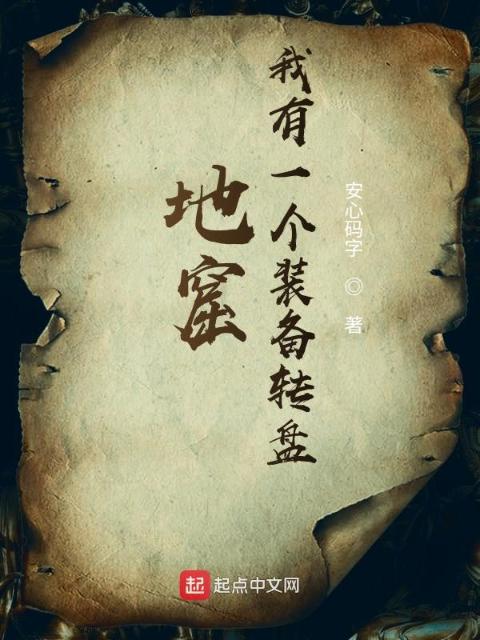 地窟
我有一个装备转盘
安心码字 ◎ 著
起 起点中文网